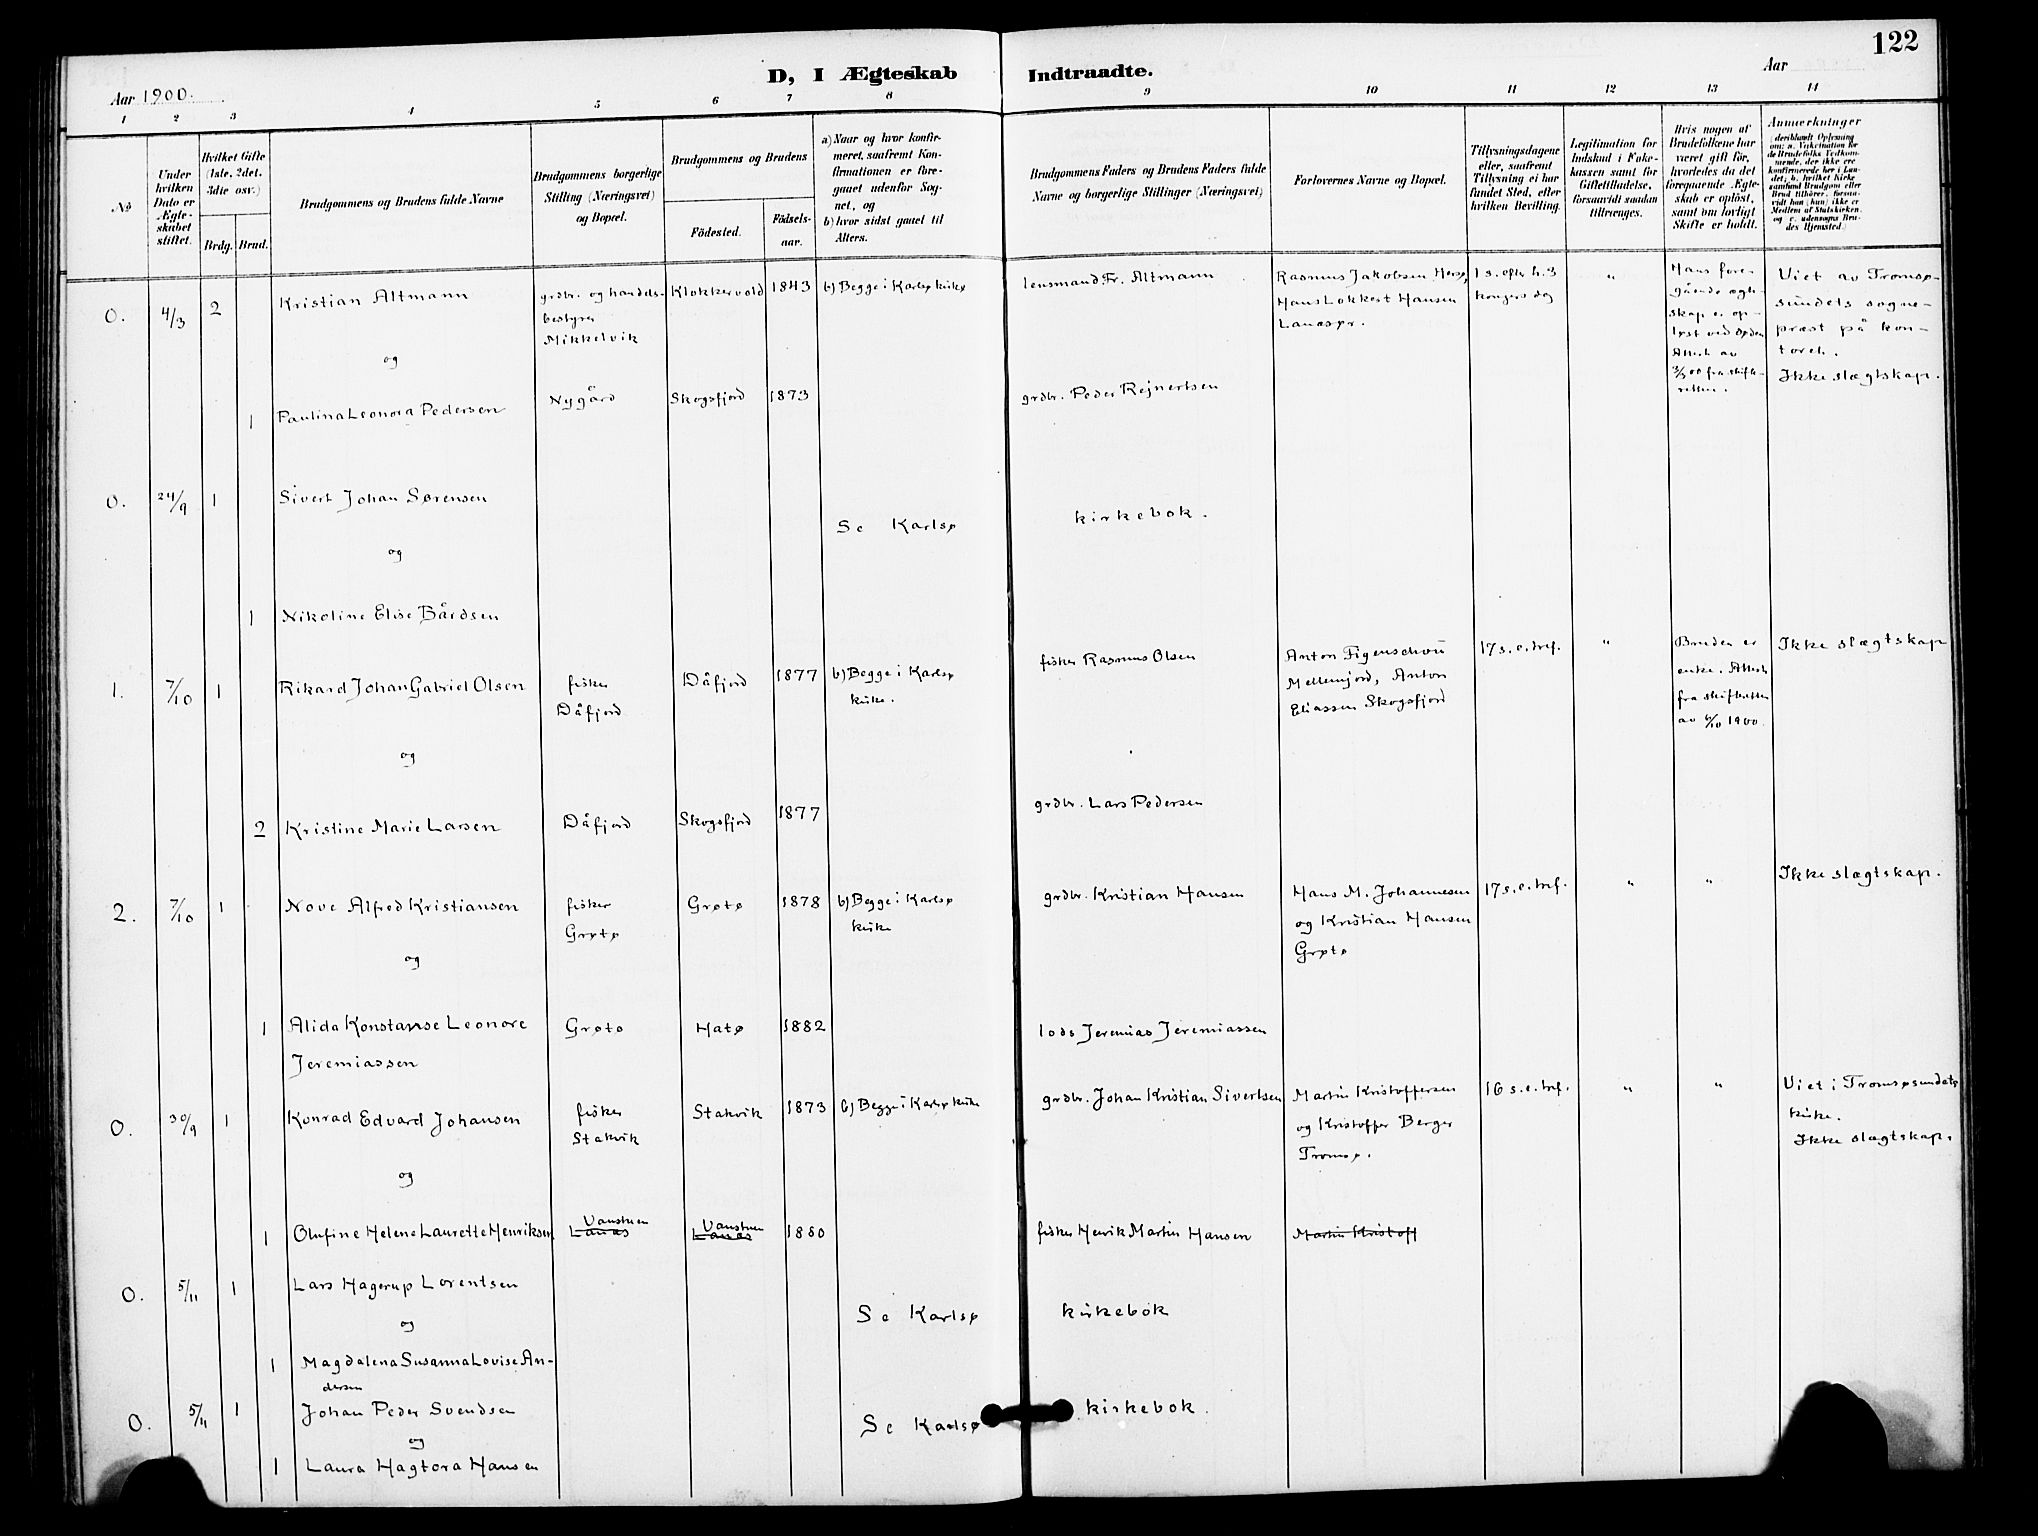 122
D, I Ægteskab Indtraadte.
Aar 1900.
Aar
1 2 3 4 5 6 7 8 9 10 11 12 13 14
No
Under hvilken Dato er Ægteskabet stiftet.
Hvilket Gifte (1ste, 2det, 3die osv.)
Brdg. Brud.
Brudgommens og Brudens fulde Navne
Brudgommens borgerlige Stilling (Næringsvei) og Bopæl.
Brudgommens og Brudens
Födested. Födsels-aar.
a) Naar og hvor konfirmeret, saafremt Konfirmationen er foregaaet udenfor Sognet, og
b) hvor sidst gaaet til Alters.
Brudgommens Faders og Brudens Faders fulde Navne og borgerlige Stillinger (Næringsvei)
Forlovernes Navne og Bopæl.
Tillysningsdagene eller, saafremt Tillysning ei har fundet Sted, efter hvilken Bevilling.
Legitimation for Indskud i Enkekassen samt for Giftetilladelse, forsaavidt saadan tiltrænges.
Hvis nogen af Brudefolkene har været gift för, hvorledes da det foregaaende Ægteskab er oplöst, samt om lovligt Skifte er holdt.
Anmerkninger
0. 4/3 2 Kristian Altmann
grdbr. og handels-
bestyrer
Mikkelvik
Klokkervold 1843 b) Begge i Karlsø kirke
lensmand Fr. Altmann
Rasmus Jakobsen Hersø,
Hans Lokkert Hansen
Lanæsør.
1 s. efter h. 3
kongers dag
"
Hans fore-
gående ægte-
skap er op-
løst ved døden
Attest av
3/3 00 fra skifte-
retten.
Viet av Tromsø-
sundets sogne-
præst på kon-
toret.
Ikke slægtskap.
og
1 Paulina Leonora Pedersen
Nygård Skogsfjord 1873
grdbr. Peder Rejnertsen
0. 24/9 1 Sivert Johan Sørensen
Se Karlsø kirkebok.
og
1 Nikoline Elise Bårdsen
1. 7/10 1 Rikard Johan Gabriel Olsen
fisker
Dåfjord
Dåfjord 1877 b) Begge i Karlsø
kirke.
fisker Rasmus Olsen
Anton Figenschou
Mellemjord, Anton
Eliassen Skogsfjord
17 s. e. tref.
"
Bruden er
enke. Attest
fra skifteretten
av 6/10 1900.
Ikke slægtskap
og
2 Kristine Marie Larsen
Dåfjord Skogsfjord 1877
grdbr. Lars Pedersen
2. 7/10 1 Nove Alfred Kristiansen
fisker
Grøtø
Grøtø 1878 b) Begge i Karlsø
kirke
grdbr. Kristian Hansen
Hans M. Johannesen
og Kristian Hansen
Grøtø
17 s. e. tref.
" "
Ikke slægtskap.
og
1 Alida Konstanse Leonore
Jeremiassen
Grøtø Hatø 1882
lods Jeremias Jeremiassen
0. 30/9 1 Konrad Edvard Johansen
fisker
Stakvik
Stakvik 1873 b) Begge i Karlsø kirke
grdbr. Johan Kristian Sivertsen
Martin Kristoffersen
og Kristoffer Berger
Tromsø.
16 s. e. tref.
" "
Viet i Tromsøsundets
kirke.
Ikke slægtskap.
og
1 Olufine Helene Laurette Henriksen
Vanstuen
Lanæs
Vanstuen
Lanæs
1880
fisker Henrik Martin Hansen
Martin Kristoff
0. 5/11 1 Lars Hagerup Lorentsen
Se Karlsø kirkebok
og
1 Magdalena Susanna Lovise An-
dersen
0. 5/11 1 Johan Peder Svendsen
Se Karlsø kirkebok.
og
1 Laura Hagtora Hansen